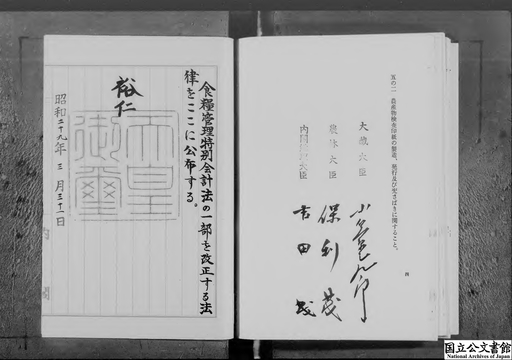 食糧管理特別会計法の一部を改正する法
律をここに公布する。
裕仁
天皇
御璽
昭和二十九年三月三十一日
内閣
五の二 農産物検査印紙の製造、発行及び売さばきに関すること。
大蔵大臣
小笠原三九郎
農林大臣
保利茂
内閣総理大臣
吉田茂
四
国立公文書館
National Archives of Japan